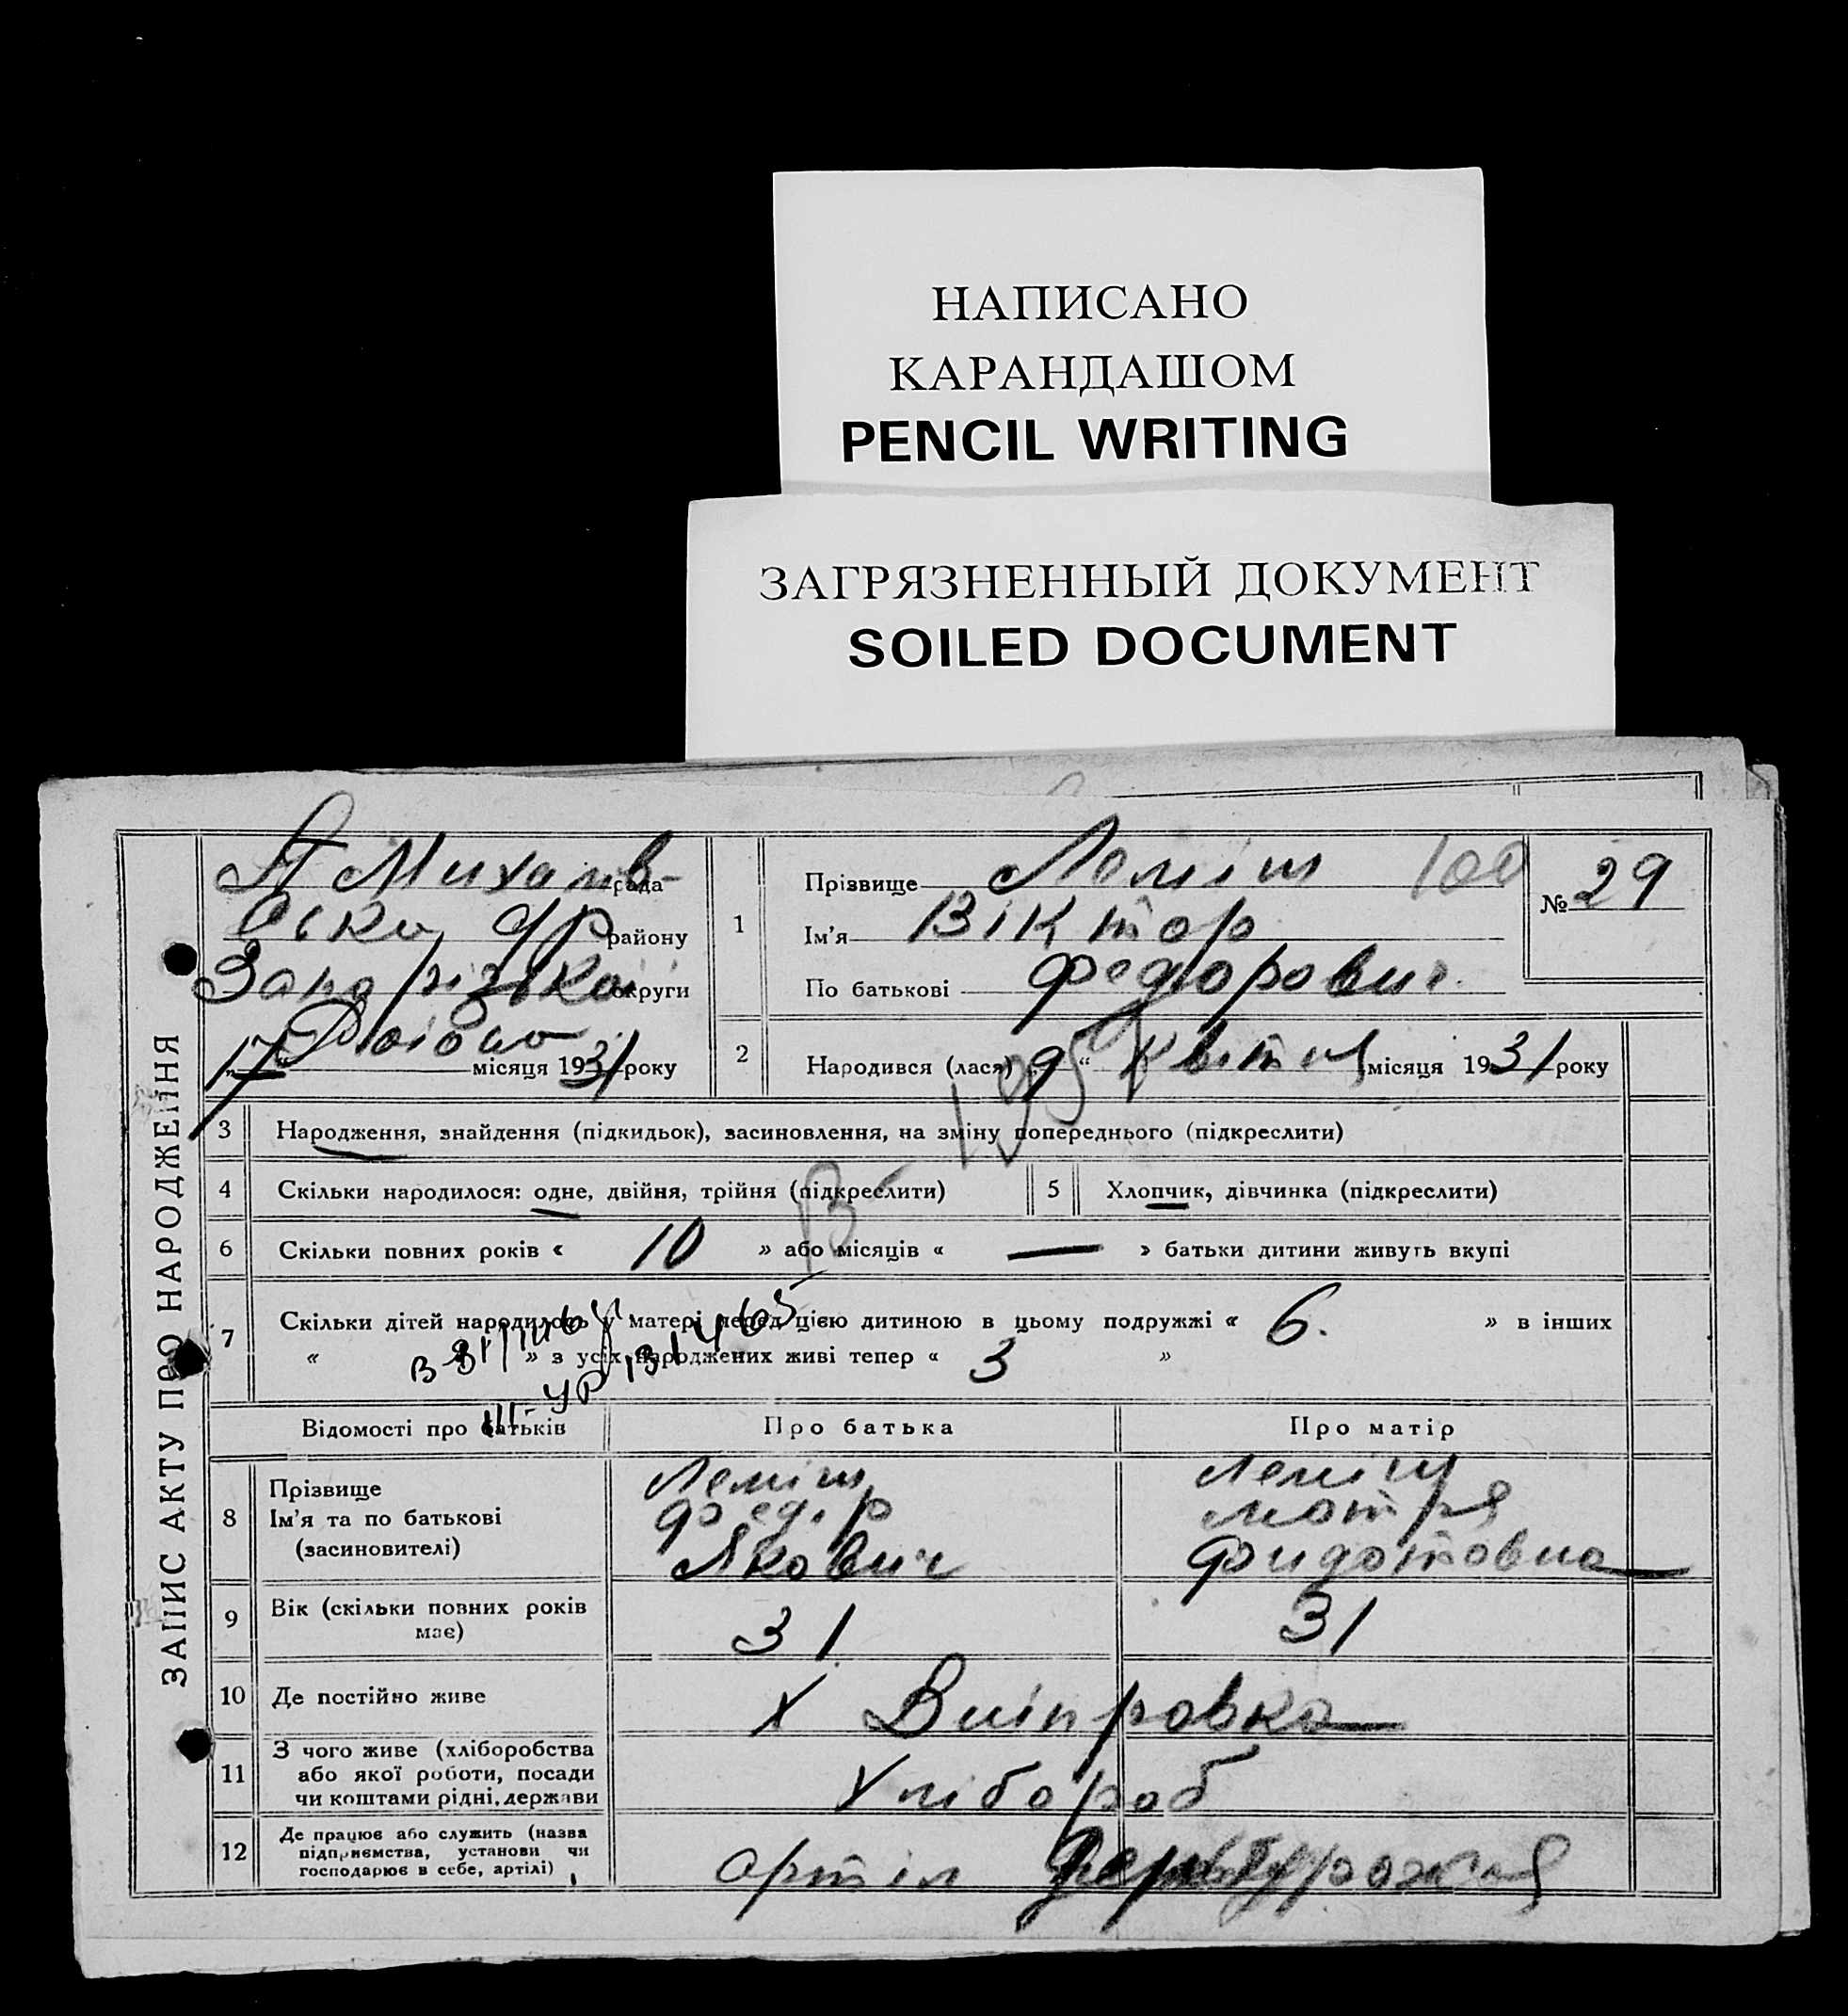 НАПИСАНО
КАРАНДАШОМ
PENCIL WRITING
ЗАГРЯЗНЕННЫЙ ДОКУМЕНТ
SOILED DOCUMENT
ЗАПИС АКТУ ПРО НАРОДЖЕННЯ
рада
району
Запорізької округи
17 " місяця 1931 року
1
Прізвище Леміш 100
Ім'я Віктор
По батькові Федорович
№ 29
2
Народився (лася) „ 9 “ Квітня місяця 1931 року
3 Народження, знайдення (підкидьок), засиновлення, на зміну попереднього (підкреслити)
4 Скільки народилося: одне, двійня, трійня (підкреслити) 5 Хлопчик, дівчинка (підкреслити)
6 Скільки повних років « 10 » або місяців « — » батьки дитини живуть вкупі
7 Скільки дітей народилось у матері перед цією дитиною в цьому подружжі « 6. » в інших
« » з усіх народжених живі тепер « 3 »
Відомості про батьків Про батька Про матір
8
Прізвище
Ім'я та по батькові
(засиновителі)
Леміш
Федір
Якович
Леміш
Мотря
Фидотовна
9 Вік (скільки повних років має) 31 31
10 Де постійно живе Х Дніпровка
11 З чого живе (хліборобства
або якої роботи, посади
чи коштами рідні, держави
Хлібороб
12 Де працює або служить (назва
підприємства, установи чи
господарює в себе, артілі)
артіл